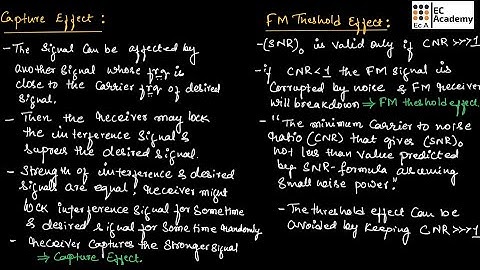 Capture Effect :
- The Signal Can be affected by
another Signal whose frq is
close to the Carrier frq of desired
Signal.
- Then the Receiver may lock
the interference Signal &
supress the desired signal.
- Strength of interference & desired
Signals are equal, Receiver might
lock interference Signal for Some time
& desired signal for Some time Randomly
- Receiver Captures the Stronger signal
⇒ Capture Effect.
FM Theshold Effect :
EC
Academy
EcA
- (SNR)₀ is valid only if CNR >>>1
- if CNR < 1 the FM Signal is
Corrupted by noise & FM Receiver
will breakdown ⇒ FM threshold effect.
- "The minimum Carrier to noise
Ratio (CNR) that gives (SNR)₀
not less than value predicted
by SNR-formula assuming
Small noise power."
- The threshold effect Can be
avoided by Keeping CNR >>>1